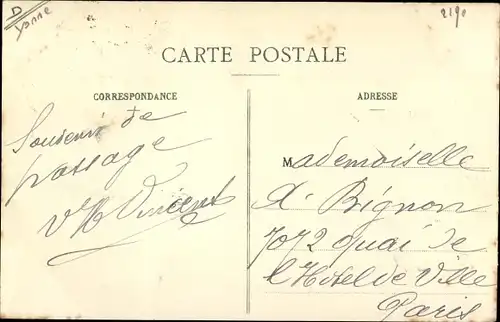 D
Yonne
2192
CARTE POSTALE
CORRESPONDANCE
ADRESSE
Souvenir de
passage
Vincent
Mademoiselle
A. Bignon
70 72 quai de
l'Hotel de Ville
Paris